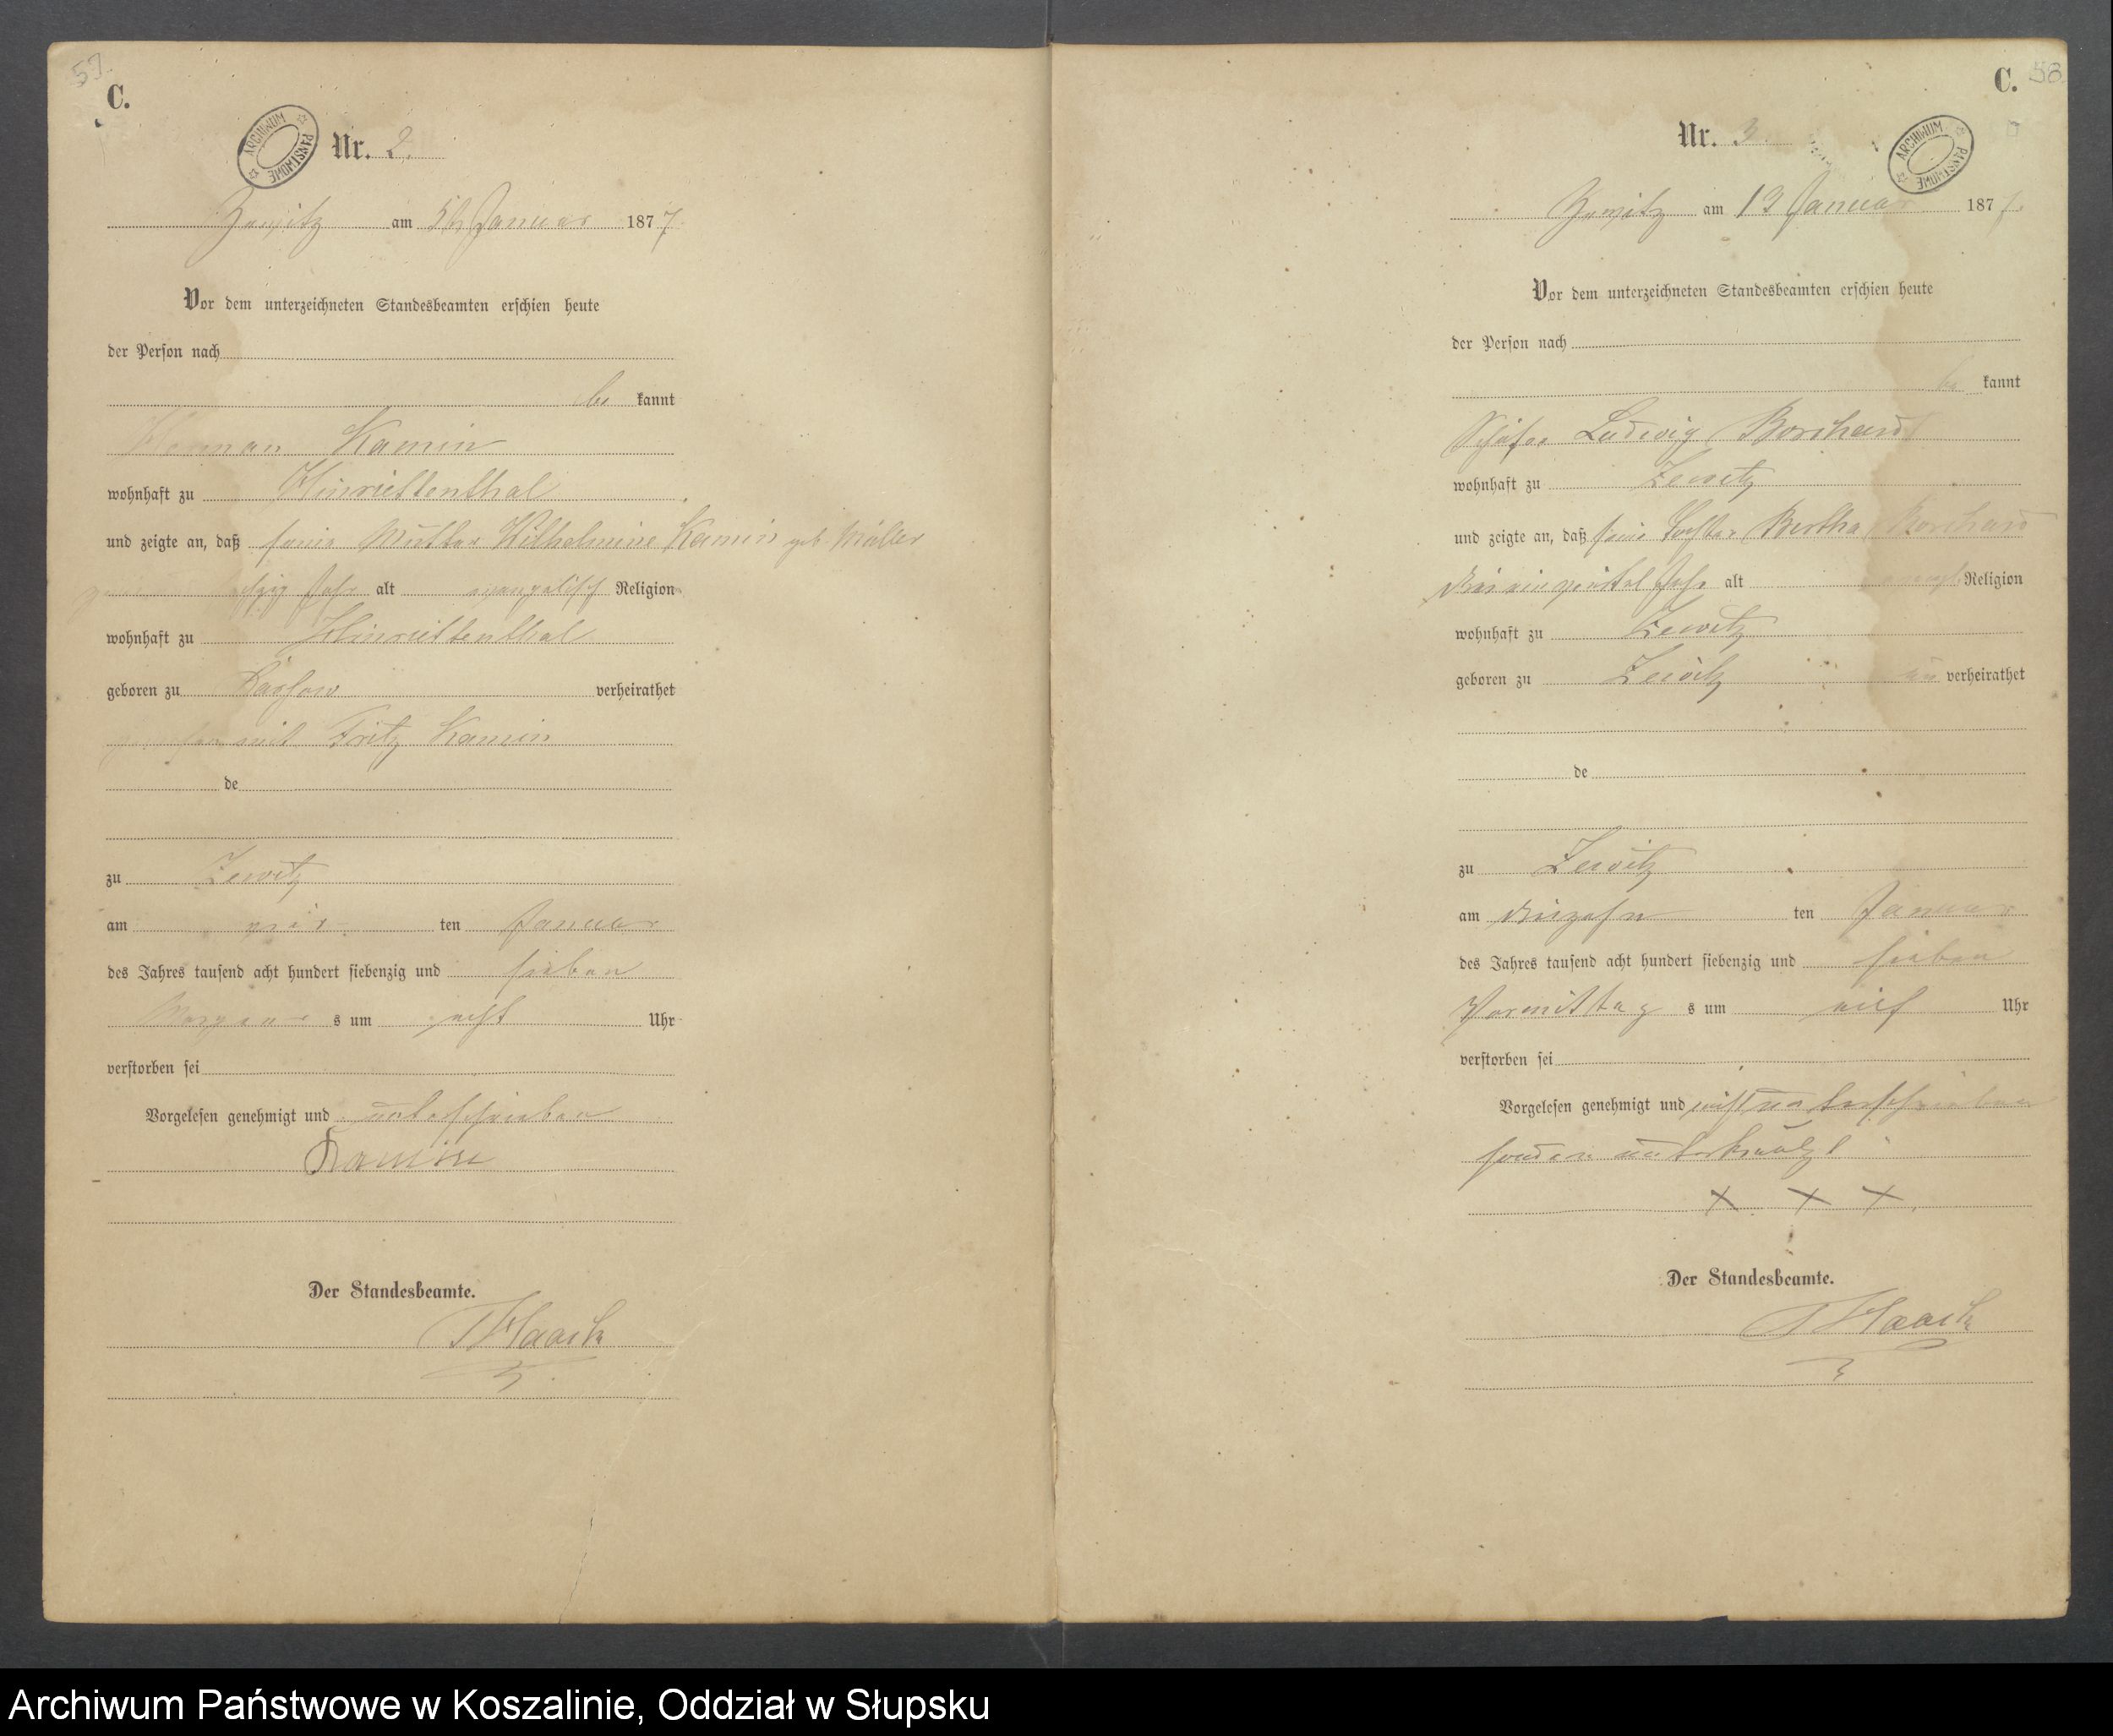 57.
C.
ARCHIWUM PAŃSTWOWE
Nr. 2.
Zewitz am 5t Januar 1877
Vor dem unterzeichneten Standesbeamten erschien heute
der Person nach
be kannt
Herman Kamin
wohnhaft zu Hinriettenthal
und zeigte an, daß seine Mutter Wilhelmine Kamin geb. Müller
achzig Jahr alt evangelisch Religion
wohnhaft zu Hinriettenthal
geboren zu verheirathet
gewesen mit Fritz Kamin
de
zu Zewitz
am vier ten Januar
des Jahres tausend acht hundert siebenzig und sieben
Morgens s um acht Uhr
verstorben sei
Vorgelesen genehmigt und unterschrieben
Kamin
Der Standesbeamte.
Haack
58.
C.
ARCHIWUM PAŃSTWOWE
Nr. 3.
Zewitz am 13 Januar 1877.
Vor dem unterzeichneten Standesbeamten erschien heute
der Person nach
be kannt
Schäfer Ludwig Borchard
wohnhaft zu Zewitz
und zeigte an, daß seine Tochter Bertha Borchard
drei ein viertel Jahr alt evangl Religion
wohnhaft zu Zewitz
geboren zu Zewitz un verheirathet
de
zu Zewitz
am dreizehn ten Januar
des Jahres tausend acht hundert siebenzig und sieben
Vormittag s um elf Uhr
verstorben sei
Vorgelesen genehmigt und nicht unterschrieben
sondern unterkreuzt
X X X
Der Standesbeamte.
Haack
Archiwum Państwowe w Koszalinie, Oddział w Słupsku